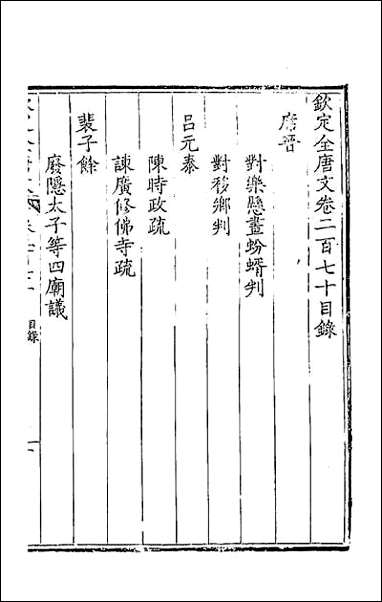 欽定全唐文卷二百七十目錄
唐晉
對樂懸畫蚡蝑判
對移鄉判
呂元泰
陳時政疏
諫廣修佛寺疏
裴子餘
廢隱太子等四廟議
目錄
一